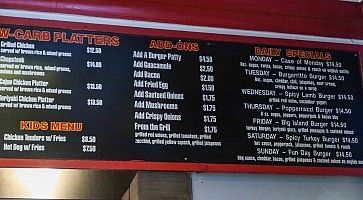 W-CARB PLATTERS
Grilled Chicken $12.50
served w/ brown rice & mixed greens
Chopsteak $14.00
served w/ brown rice & mixed greens,
onions and mushrooms
Cajun Chicken Platter $13.50
served w/ brown rice & mixed greens
Teriyaki Chicken Platter $13.50
served w/ brown rice & mixed greens
KIDS MENU
Chicken Tenders w/ Fries $8.50
Hot Dog w/ Fries $7.50
ADD-ONS
Add A Burger Patty $4.50
Add Guacamole $2.50
Add Bacon $2.00
Add Fried Egg $1.50
Add Sauteed Onions $1.75
Add Mushrooms $1.75
Add Crispy Onions $1.75
From the Grill $1.75
grilled red onions, roasted tomatoes, grilled
zucchini, yellow squash, grilled jalapenos
DAILY SPECIALS
MONDAY - Case of Monday $14.50
TUESDAY - Burgerrito Burger $14.50
crispy
WEDNESDAY - Spicy Lamb Burger $14.50
grilled red onion, cucumber yogurt
THURSDAY - Peppersnaxt Burger $14.50
FRIDAY - Big Island Burger $14.50
turkey burger, teriyaki glaze, grilled pineapple & sauteed onions
SATURDAY - Spicy Turkey Burger $14.50
SUNDAY - Fun Day Burger $14.50